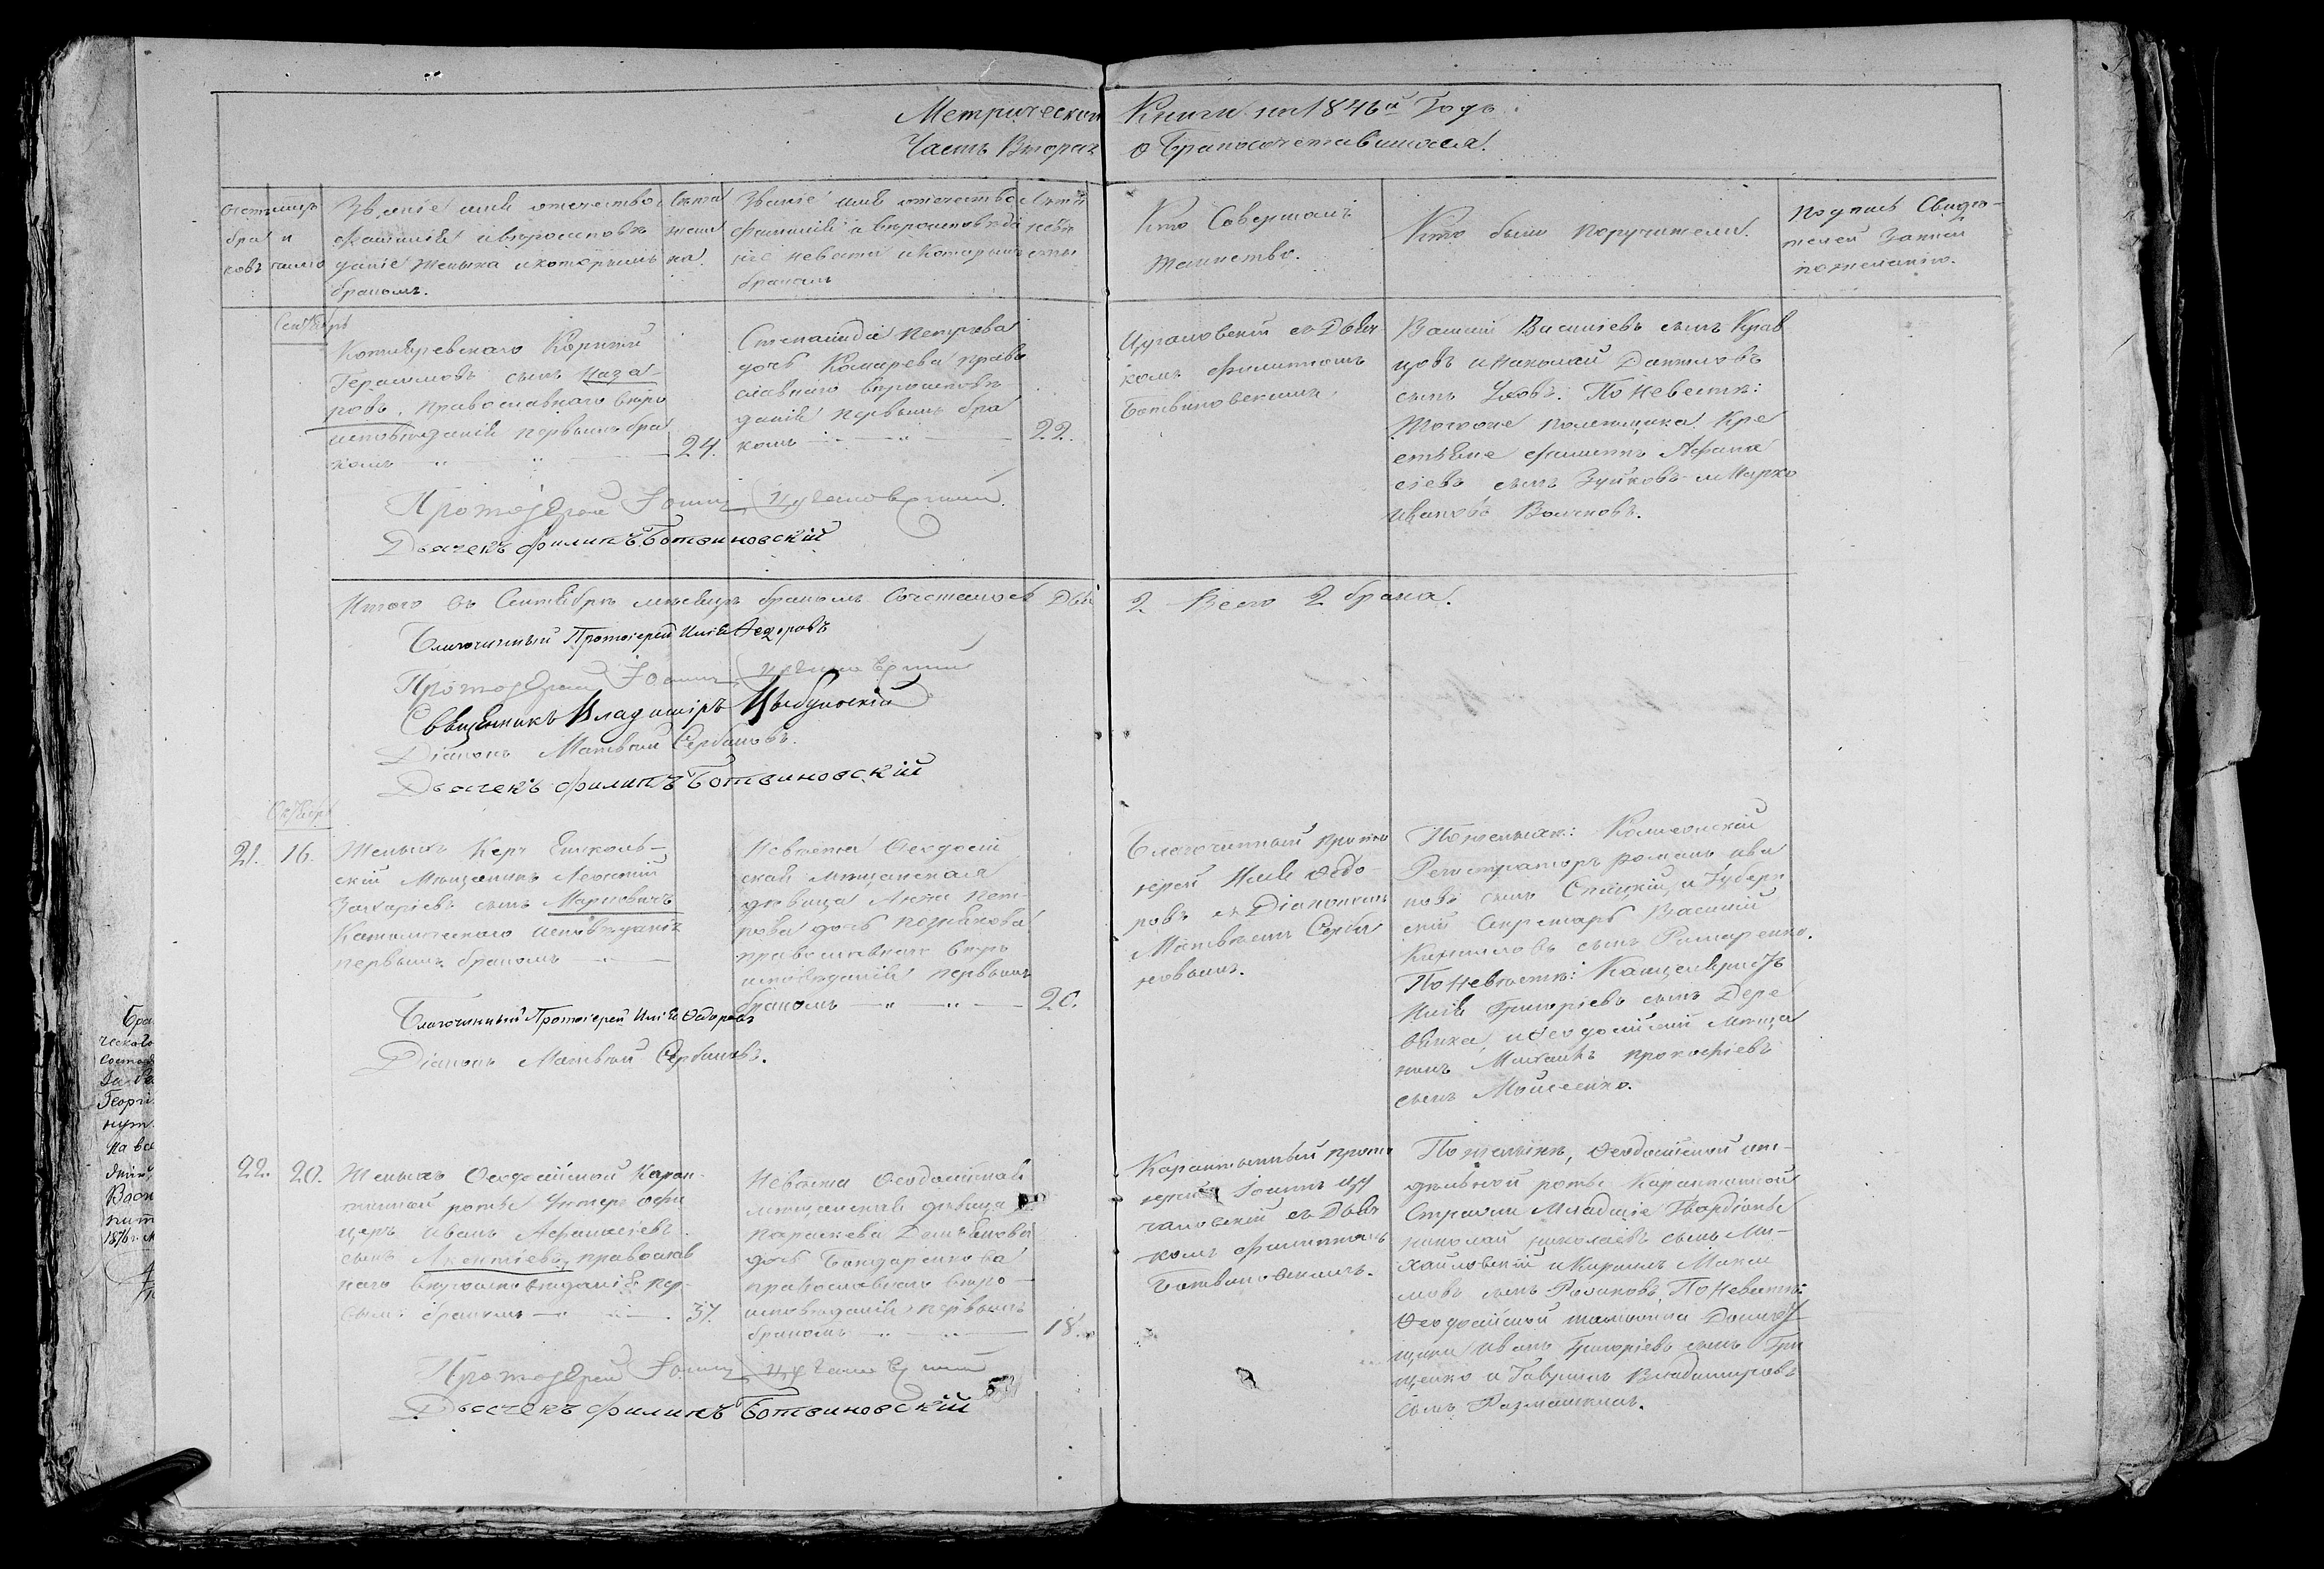 Метрической Книги на 1846й Годъ.
Часть Вторая о Бракосочетавшихся.
Счетъ браковъ
Званіе имя отечество
фамилія и вѣроисповѣ
даніе Жениха и которымъ
бракомъ.
Лѣта
жени
ха.
Званіе имя отечество
фамилія и вѣроисповѣда
ніе невѣсты и которымъ
бракомъ
Лѣта
невѣ
сты
Кто Совершалъ
Таинство.
Кто были Поручители.
Подпись Свидѣ-
телей Записи
по желанію.
Герасимовъ сынъ Наза-
ровъ, православнаго вѣро
исповѣданія первымъ бра
комъ 24.
Степанида Петрова
дочь Комарева право
славнаго вѣроисповѣ
данія первымъ бра
комъ 22.
Цугановскій съ Дьяч
комъ Филиппомъ
Ботвиновскимъ.
Василій Василіевъ сынъ Крав
цовъ и Николай Даниловъ
сынъ По Невѣстѣ:
помѣщика Кре
стьяне Афана
сіевъ сынъ Зуйковъ и Марко
Ивановъ Волчковъ.
Протоіерей Іоаннъ Цугановскій
Дьячекъ Филипъ Ботвиновскій
Итого въ Сентябрѣ мѣсяцѣ бракомъ Сочеталось Два
2 Всего 2 брака.
Благочинный Протоіерей Илія Ѳедоровъ
Протоіерей Іоаннъ Цугановскій
Священникъ Владиміръ Цыбульскій
Діаконъ Матвѣй Сербиновъ.
Дьячекъ Филипъ Ботвиновскій
Октябрь
21. 16.
Женихъ Керч Ениколь-
скій Мѣщанинъ
Захаріевъ сынъ Марковичъ
Католическаго исповѣданія
первымъ бракомъ
Невѣста Ѳеодосій
ская мѣщанская
дѣвица Анна Пет
рова дочь Познякова
православнаго вѣро
исповѣданія первымъ
бракомъ 20.
Благочинный прото
іерей Илія Ѳедо
ровъ съ Діакономъ
Матвѣемъ Серби
новымъ.
По женихѣ: Коллежскій
Регистраторъ Романъ Ива
новъ сынъ и Губерн
скій Секретарь Василій
Кириловъ сынъ
По Невѣстѣ: Канцеляристъ
Илія Григоріевъ сынъ Дере
вянка, и Ѳеодосійскій Мѣща
нинъ Михаилъ Прокофіевъ
сынъ Мойсеенко.
Благочинный Протоіерей Илія Ѳедоровъ
Діаконъ Матвѣй Сербиновъ.
22. 20.
Женихъ Ѳеодосійской Каран-
тинной роты Унтеръ Офи
церъ Иванъ Афанасіевъ
сынъ православ
наго вѣроисповѣданія пер
вымъ бракомъ 37.
Невѣста Ѳеодосійская
мѣщанская дѣвица
Параскева
дочь Бондаренкова
православнаго вѣро
исповѣданія первымъ
бракомъ 18.
Карантинный прото
іерей Іоаннъ Цу
гановскій съ Дьяч
комъ Филиппомъ
Ботвиновскимъ.
По женихѣ, Ѳеодосійской от-
дѣльной роты Карантинной
Стражи Младшіе Гвардіоны
Николай Николаевъ сынъ Ми-
хайловскій и Кирилъ Макси
мовъ сынъ По Невѣстѣ:
Ѳеодосійской таможни Досмотр
щики Иванъ Григоріевъ сынъ Гри
щенко и Гаврилъ Владимировъ
сынъ
Протоіерей Іоаннъ Цугановскій
Дьячекъ Филипъ Ботвиновскій